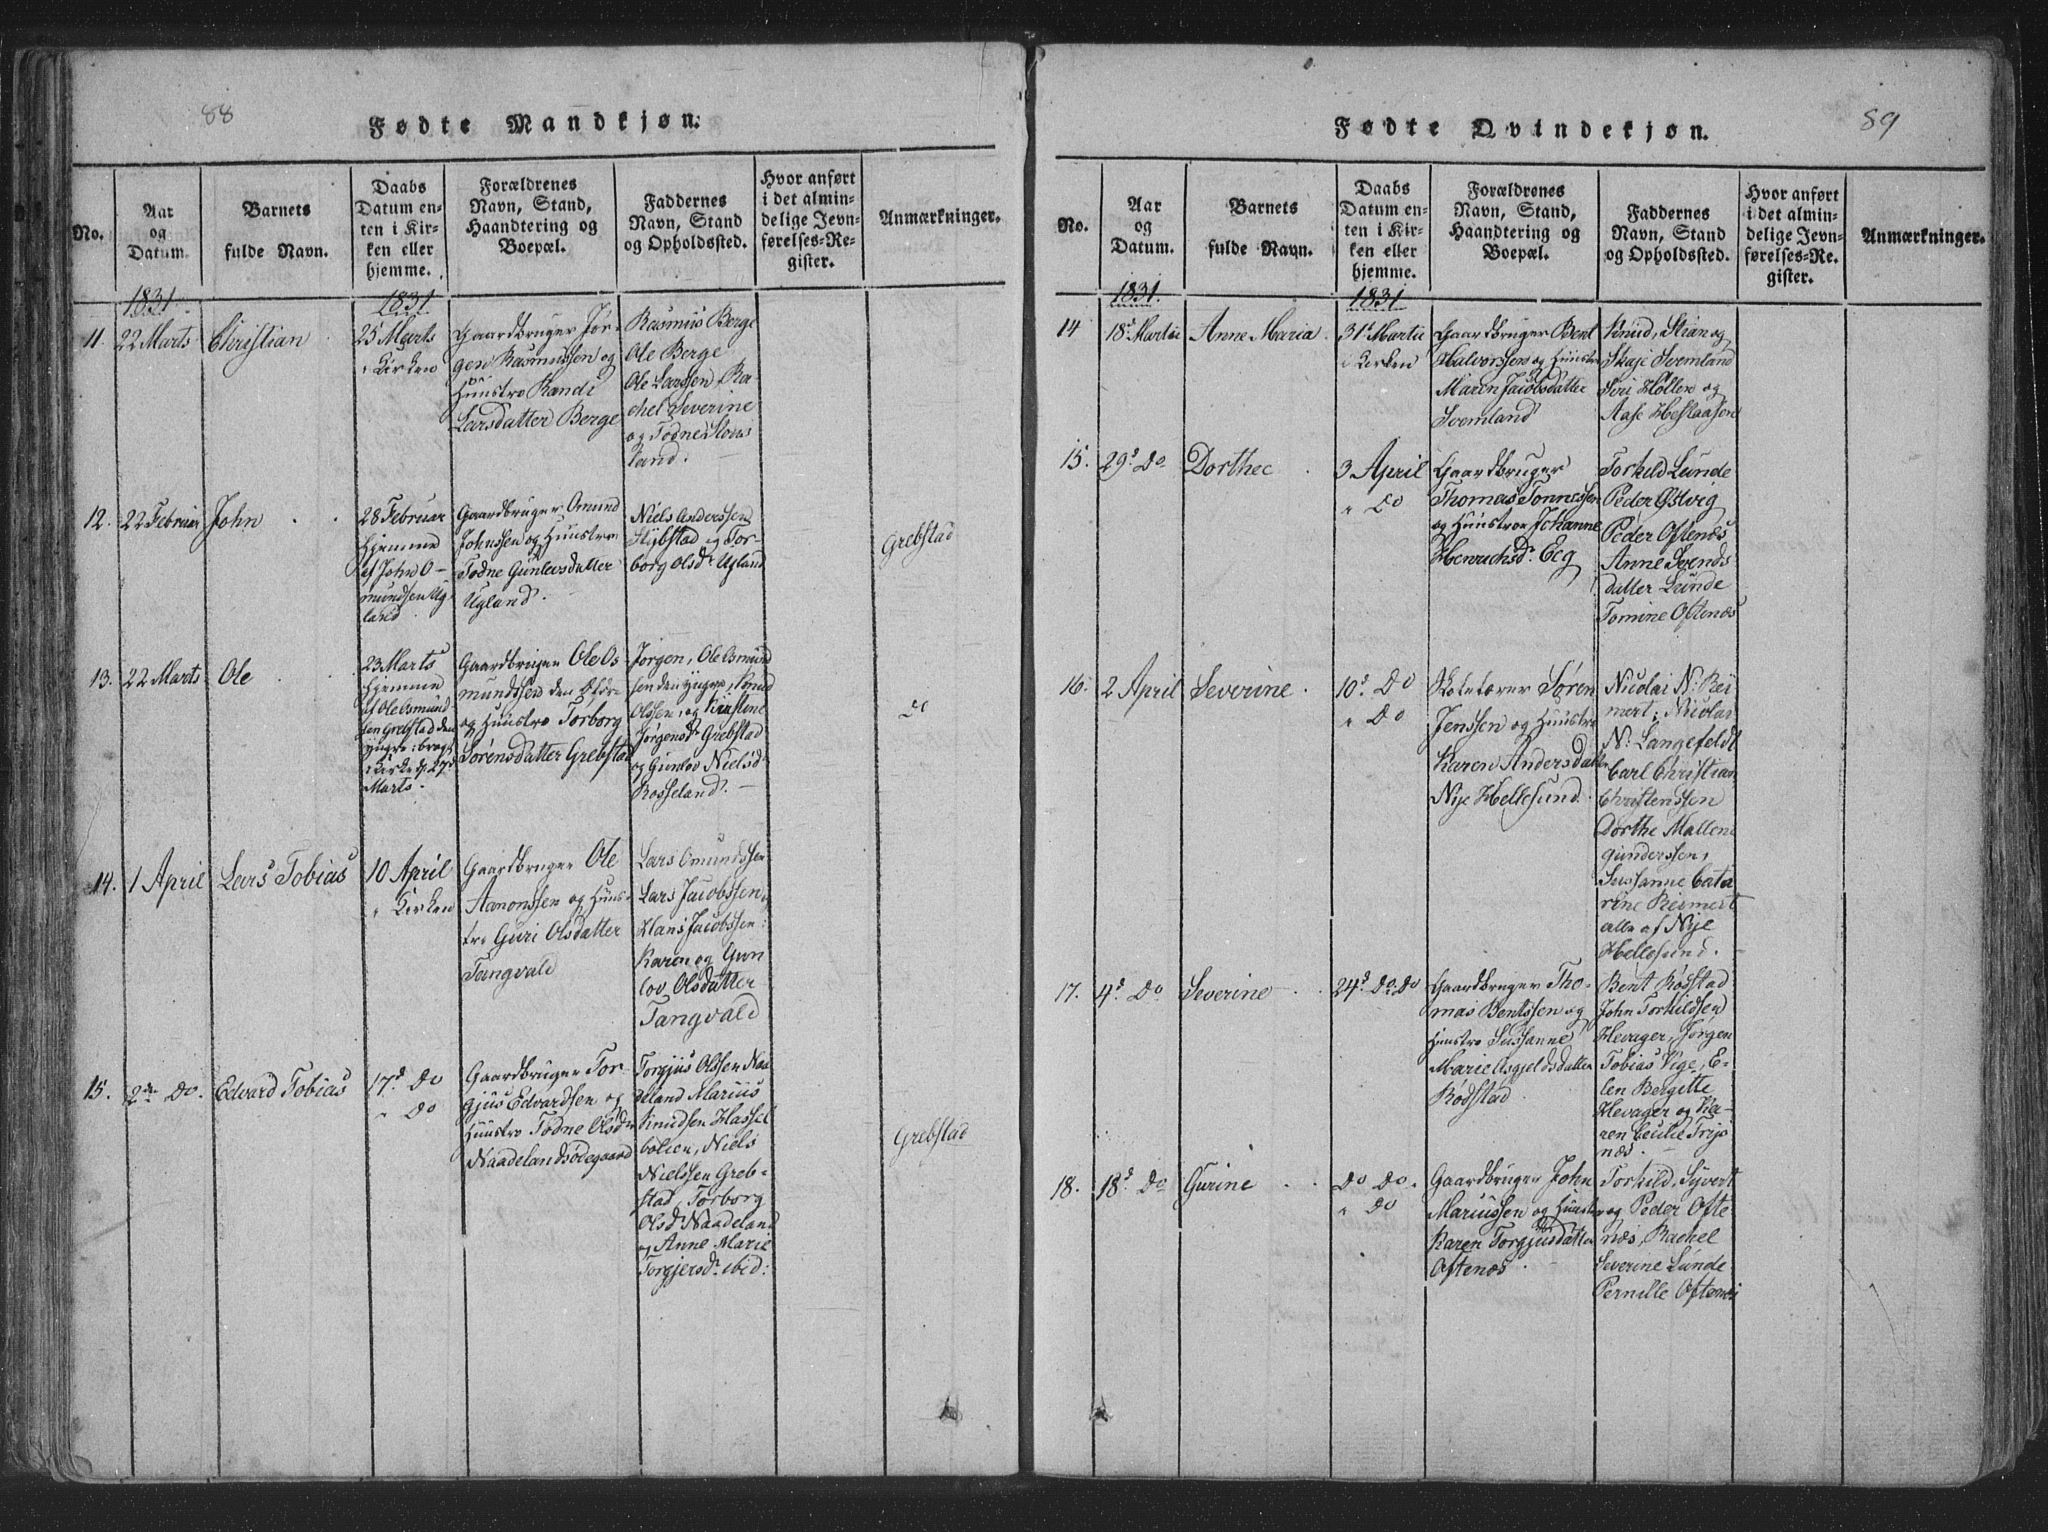 88
Fødte Mandkjøn.
No.
Aar
og
Datum.
Barnets
fulde Navn.
Daabs
Datum en-
ten i Kir-
ken eller
hjemme.
Forældrenes
Navn, Stand,
Haandtering og
Boepæl.
Faddernes
Navn, Stand
og Opholdssted.
Hvor anført
i det almin-
delige Jevn-
førelses-Re-
gister.
Anmærkninger.
1831
1831
11.
22 Marts
Christian
25 Marts
i Kirken
Gaardbruger Jør-
gen Rasmussen og
Huustro Randi
Larsdatter Berge
Rasmus Berge
Ole Berge
Ole Larssen, Ra-
chel Severine
og Todne Slovs
land.
12.
22 Februar
John
28 Februar
Hjemme
af John O-
mundsen Ug-
land
Gaardbruger Omund
Johnssen og Huustroe
Todne Gunlevsdatter
Ugland.
Niels Anderssen
Stÿbstad og Tor-
borg Olsdr Ugland
Grebstad
13.
22 Marts
Ole
23 Marts
Hjemme
af Ole Osmund
sen Grebstad den
yngre: bragt
i Kirke d. 27d
Marts.
Gaardbruger Ole Os-
mundssen den Ældr-
og Huustro Torborg
Sørensdatter Grebstad
Jørgen, Ole Osmund
sen den yngre, Knud
Olssen, og Kirstine
Jørgensdr Grebstad
og Gunlov Nielsd.
Rosseland.
do
14.
1 April
Lars Tobias
10 April
i Kirken
Gaardbruger Ole
Aanonssen og Huus-
tro Guri Olsdatter
Tangvald
Lars Omundssen
Lars Jacobssen,
Hans Jacobssen:
Karen og Gun
lov Olsdatter
Tangvald
15.
2den Do.
Edvard Tobias
17d Do
" Do
Gaardbruger Tor-
gjus Edvardsen og
Huustro Todne Olsdr
Naadelandsødegaard
Torgjus Olssen Naa
deland Marius
Knudsen Hassel
bolien, Niels
Nielssen Greb-
stad, Torborg
Olsd Naadeland
og Anne Marie
Torgjersdr ibid:
Grebstad
89
Fødte Qvindekjøn.
No.
Aar
og
Datum.
Barnets
fulde Navn.
Daabs
Datum en-
ten i Kir-
ken eller
hjemme.
Forældrenes
Navn, Stand,
Haandtering og
Boepæl.
Faddernes
Navn, Stand
og Opholdssted.
Hvor anført
i det almin-
delige Jevn-
førelses-Re-
gister.
Anmærkninger.
1831.
1831
14
18d Martii
Anne Maria
31d Martii
i Kirken
Gaardbruger Bent
Halvorssen og Huustro
Maren Jacobsdatter
Svemland
Knud, Stian og
Skaje Svemland
Siri Hollen og
Aase Heslaasen
15.
29d Do
Dorthee
3 April
" Do
Gaardbruger
Thomas Tønnessen
og Huustroe Johanne
Henrichsdr Eeg
Torkild Lunde
Peder Østvig
Peder Oftenæs
Anne Svends
datter Lunde
Tomine Oftenæs
16.
2 April
Severine
10d Do
" Do
Skoelærer Søren
Jenssen og Huustro
Karen Andersdatter
Nÿe Hellesund.
Nicolai N: Rei-
mert, Nicolai
N: Langefeldt
Carl Christian
Christenssen
Dorthe Mallene
Gunderssen,
Sussanne Cata
rine Reimert
alle af Nÿe
Hellesund.
17.
4d Do
Severine
24d Do Do
Gaardbruger Tho-
mas Bentssen og
Huustro Sussanne
Marie Asgjeldsdatter
Rødstad
Bent Rødstad
John Torkildsen
Hevager, Jørgen
Tobias Vige, E-
len Bergitte
Hevager og Ka-
ren Cecilie Trÿs
næs.
18.
18d Do
Gurine
Do Do.
" Do
Gaardbruger John
Mariussen og Huustro
Karen Torgjusdatter
Oftenæs
Torkild, Sÿvert
og Peder Ofte
næs, Rachel
Severine Lunde
Pernille Oftenæs